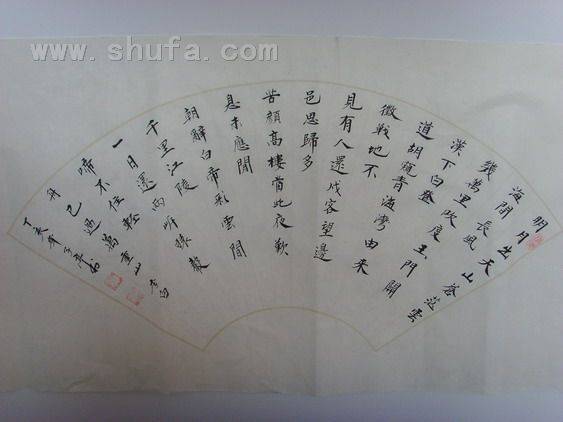 明月出天山蒼茫雲
海間長風
幾萬里吹度玉門關
漢下白登
道胡窺青海灣由來
徵戰地不
見有人還戍客望邊
邑思歸多
苦顏高樓當此夜歎
息未應閒
朝辭白帝彩雲間
千里江陵
一日還兩岸猿聲
啼不住輕
舟已過萬重山 李白
丁亥年書
www.shufa.com